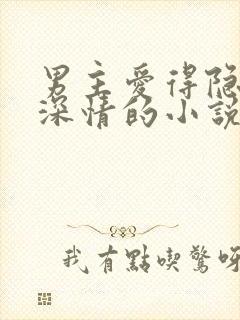 男主愛得隐
深情的小説
我有點喫驚呀